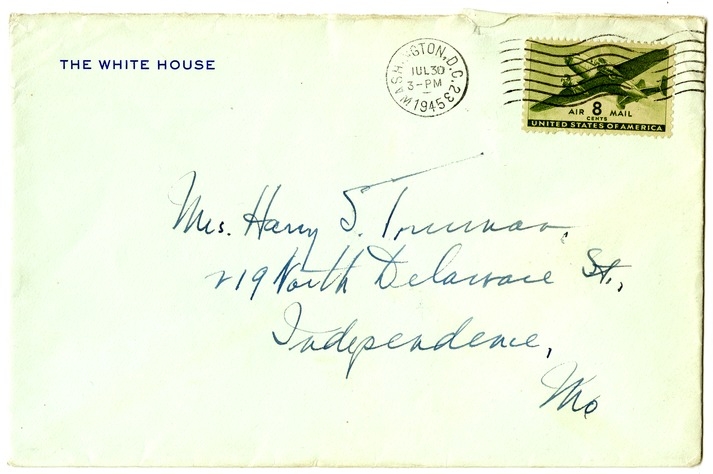 THE WHITE HOUSE
WASHINGTON, D.C. 23
JUL 30
3-PM
1945
AIR 8 MAIL
CENTS
UNITED STATES OF AMERICA
Mrs. Harry S. Truman,
219 North Delaware St.,
Independence,
Mo